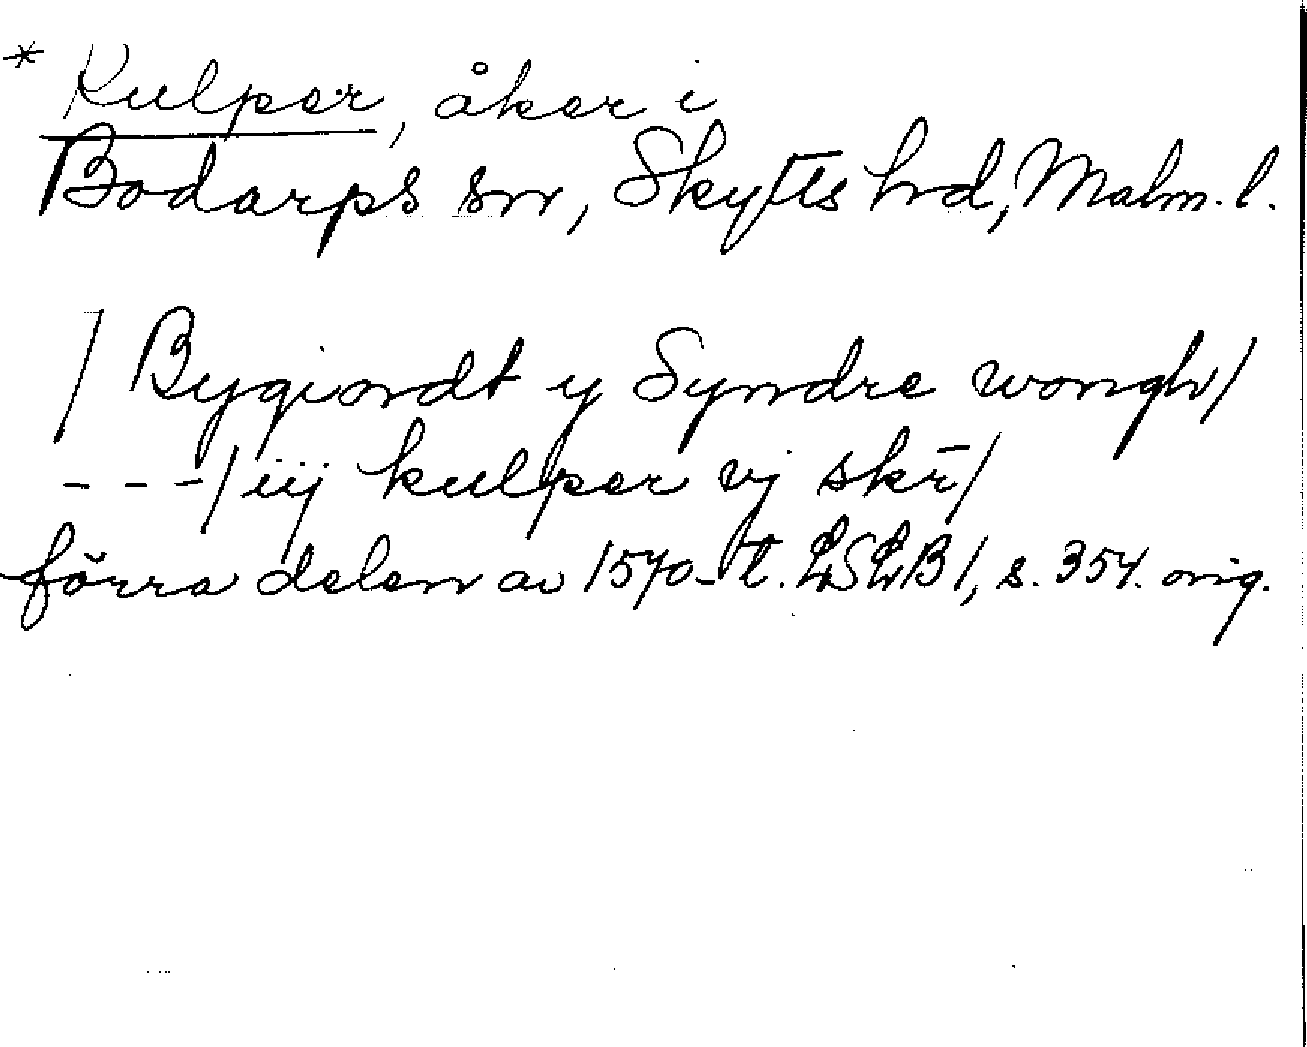 * Kulper, åker i
Bodarps sn, Skytts hd, Malm. l.
/ Bygiordt y Syndre wongh/
- - -/ iij kulper vj skr̄/
förra delen av 1570-t. LSLB 1, s. 354. orig.